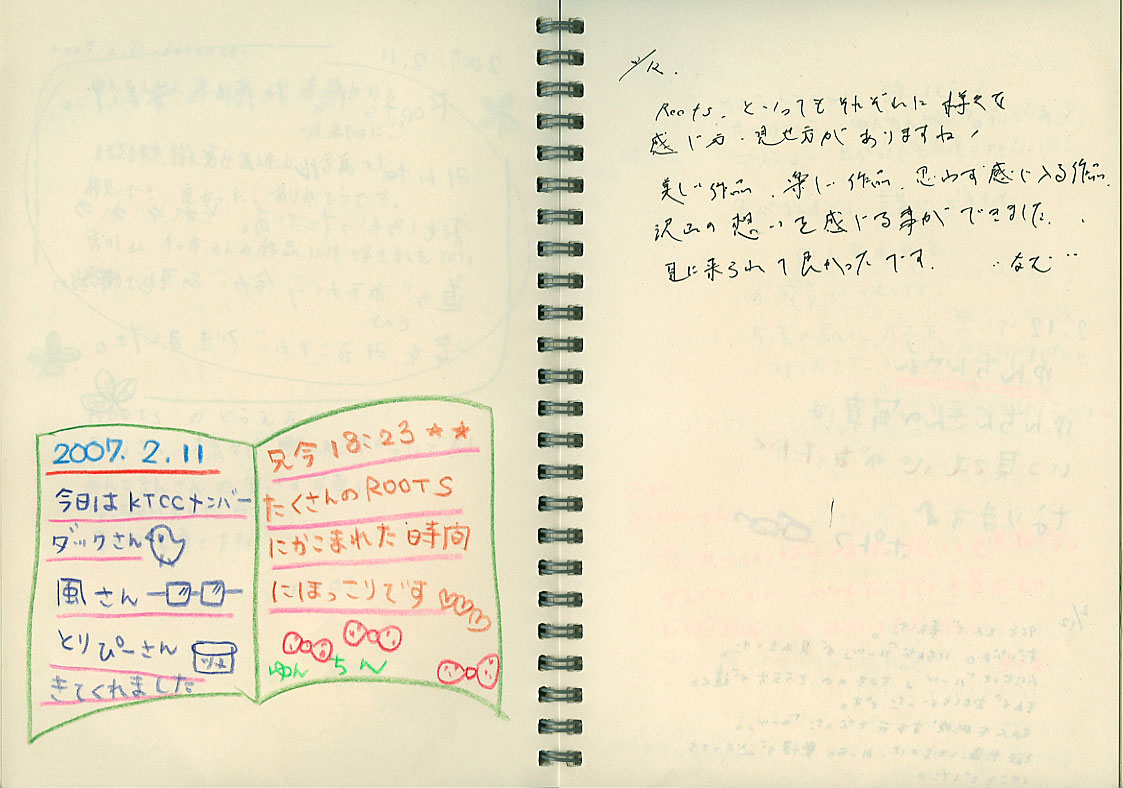 2007. 2. 11
今日は KTCCメンバー
ダックさん
風さん
とりぴーさん
ツメ
きてくれました
只今 18:23 ★★
たくさんのROOTS
にかこまれた時間
にほっこりです♡♡♡
ゆんちん
Roots. といってもそれぞれに様々な
感じ方・見せ方がありますね!
美しい作品、楽しい作品、思わず感じ入る作品.
沢山の想いを感じる事ができました.
見に来られて良かったです.